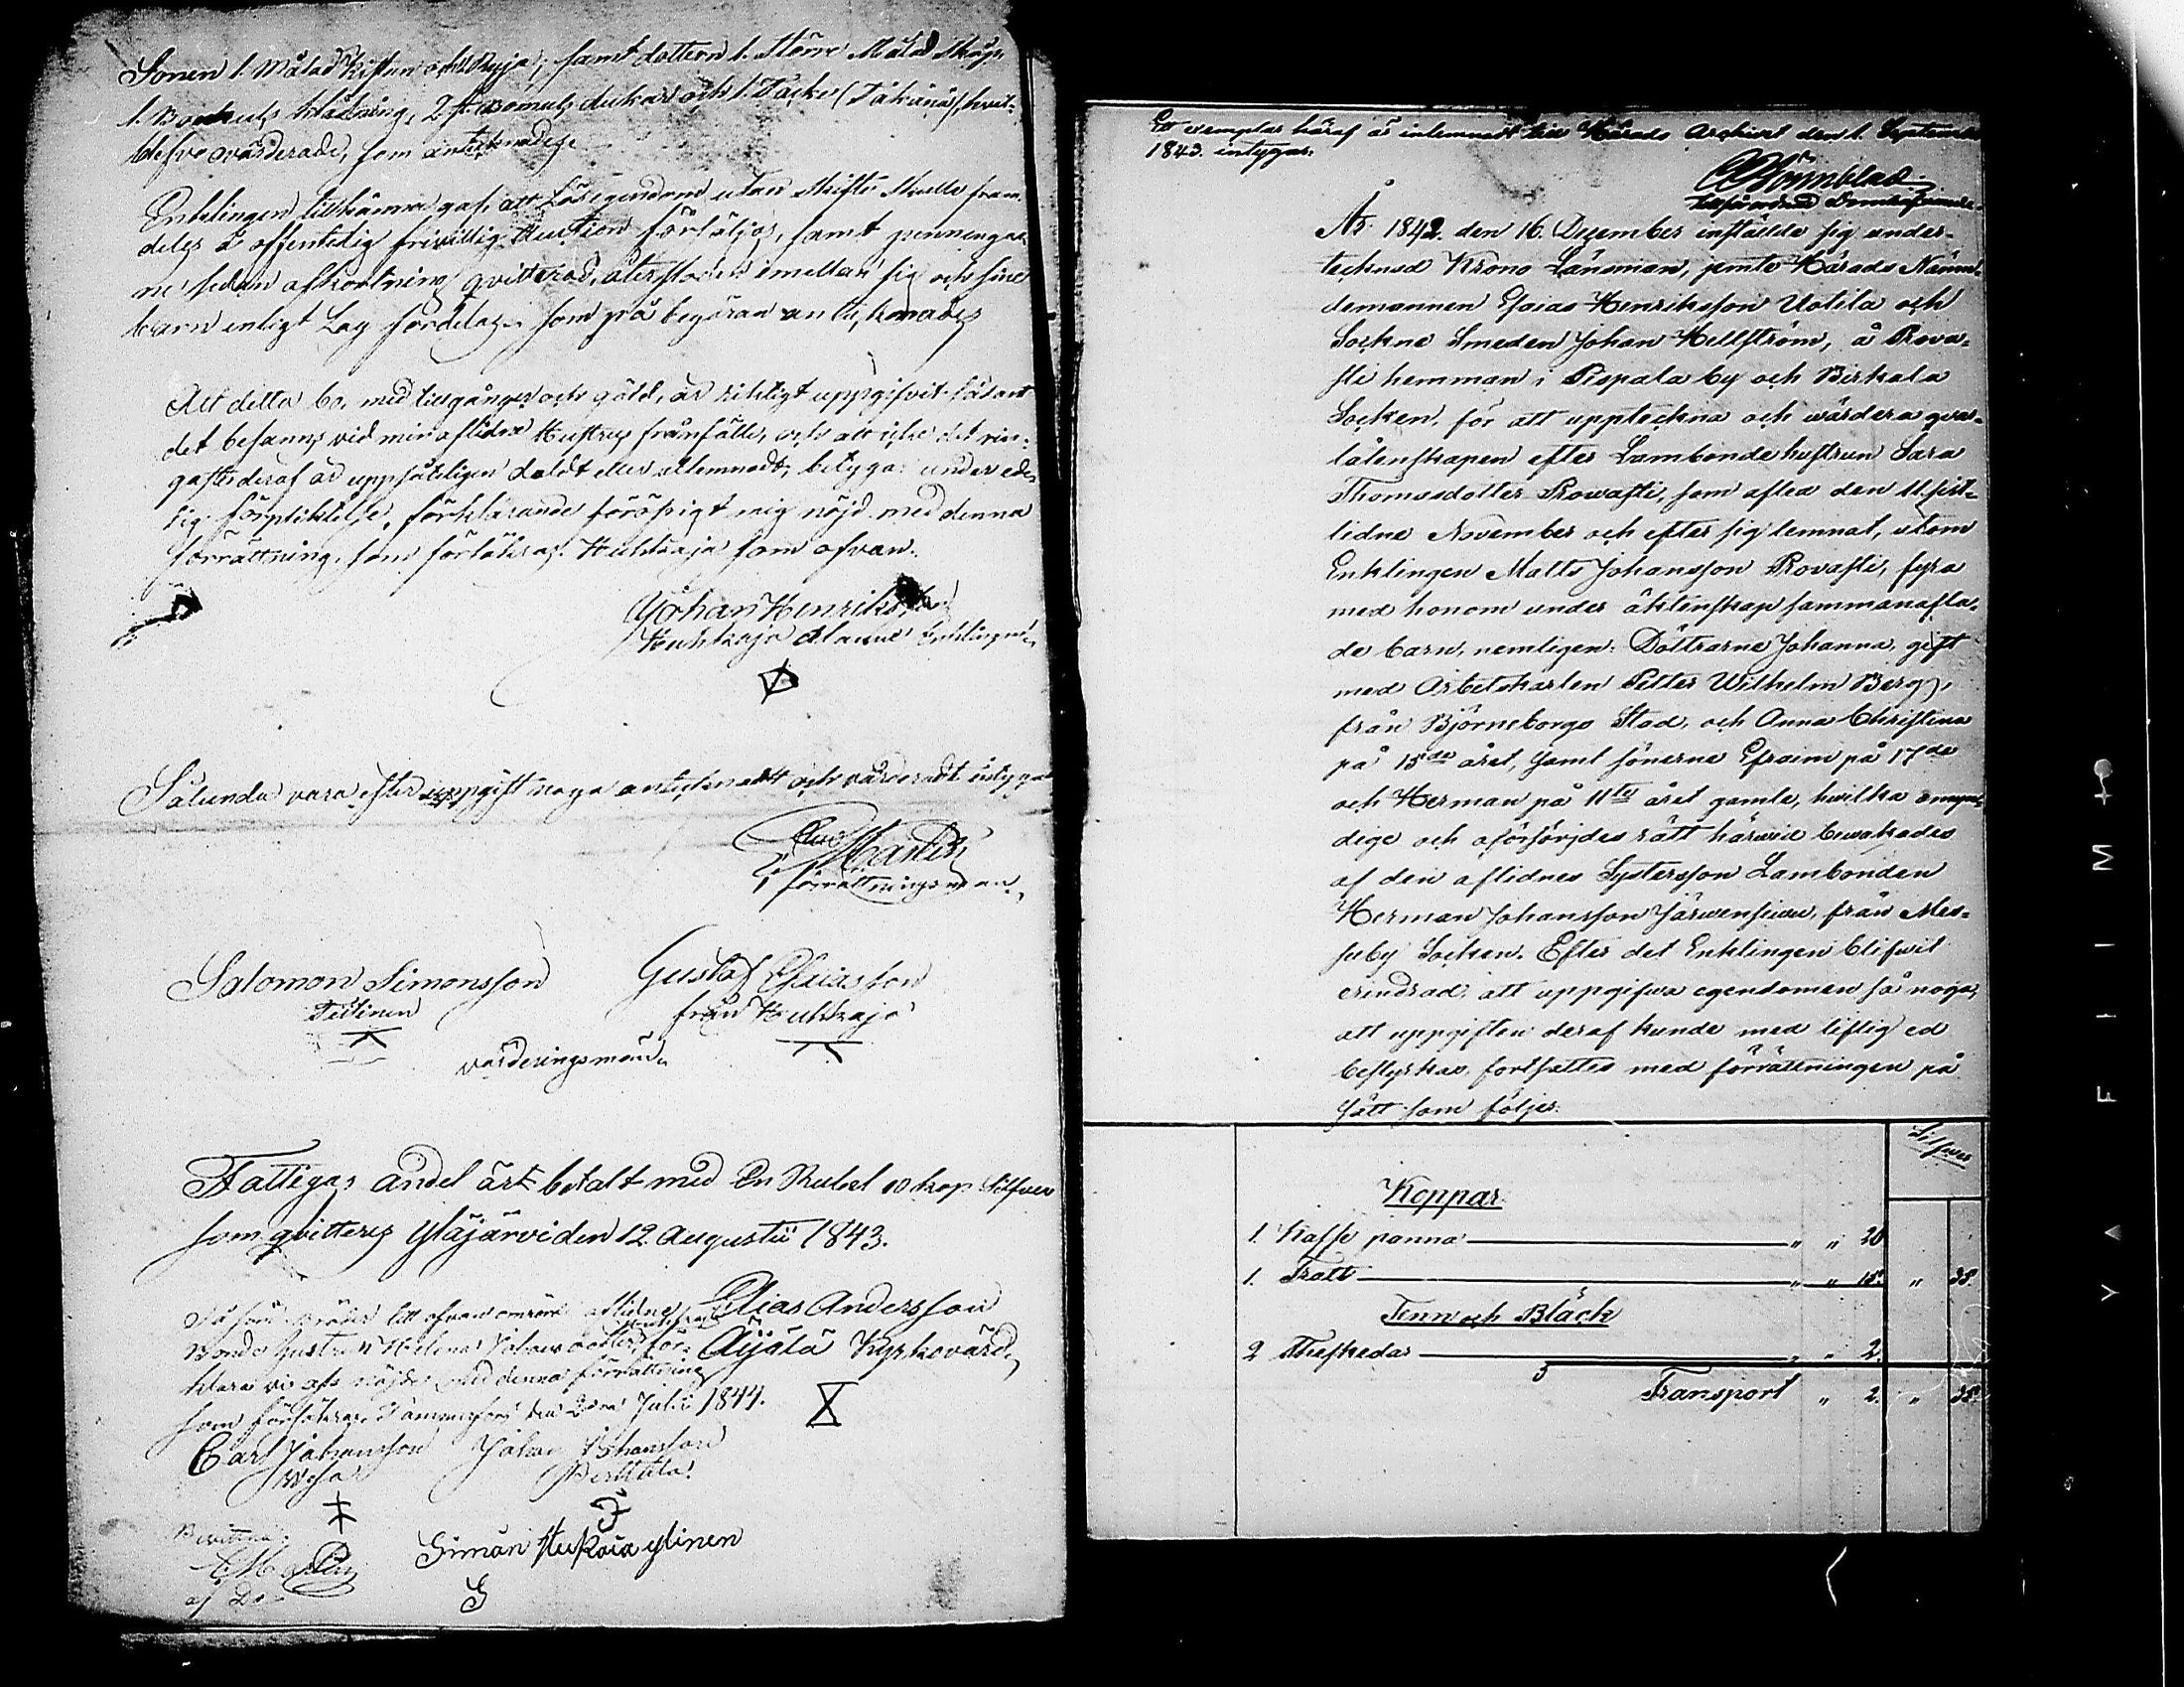 Sonen 1. Målad Kistan och Ryja; samt dottern 1. större Målad Skåp,
1. Bomulls klädning, 2 st. Bomulls dukar och 1. Täcke
blefvo ovärderade, som antecknades.
Enklingen tillkänna gaf, att Lösegendomen utan skifte skulle fram
deles å offentelig frivillig Auction försäljas, samt penningar
ne sedan afkortning qvitterad, återstoden emellan sig och sine
barn enligt Lag fördelas. som på begäran antecknades
Att detta bo, med tillgångar och gäld, är riktigt uppgifvit sådant
det befanns vid min aflidna Hustrus frånfälle, och att icke det rin-
gaste deraf är uppsåteligen doldt eller utlemnadt, betygar under ede-
lig förpliktelse, förklarande föröfrigt mig nöjd med denna
förrättning, som försäkras. Kuhkaja som ofvan.
Johan Henriksson
Kuhkaja Enklingen
Sålunda vara efter uppgift noga antecknadt och värderadt intygar
Martin
förrättningsman.
Salomon Simonsson Gustaf Esaiasson
Teitinen från Kuhkaja
värderingsmän
Fattigas andel är betalt med En Rubel 10 kop Silfver
som qvitteras Ylöjärvi den 12. Augustii 1843.
Elias Andersson
Äijälä Kyrkovärd
Så som bröder till ofvan omrörde aflidne
Bonde hustrun Helena Johansdotter, för-
klara vi oss nöjde med denna förrättning
som försäkras. Tammerfors den 2dra Julii 1844.
Carl Johansson Johan Johansson
Perttula
Bevittna
af Do
Simon ylinen
S
Ett exemplar häraf är inlemnadt till Härads Archivet den 1. September
1843. intygar.
År 1842. den 16. December inställde sig under-
tecknad Krono Länsman, jemte Härads Nämn-
demannen Esaias Henriksson Uotila och
Sockne Smeden Johan Hellström, å Prova-
sti hemman i Pispala by och Birkala
Socken, för att uppteckna och wärdera qvar-
låtenskapen efter Lambonde hustrun Sara
Thomasdotter Prowasti, som afled den 11. sist-
lidne November och efter sig lemnat, utom
Enklingen Matts Johansson Provasti, fyra
med honom under äktenskap sammanafla-
de barn, nemligen: Döttrarne Johanna, gift
med Arbetskarlen Petter Wilhelm Berg,
från Björneborgs Stad, och Anna Christina
på 15de året, samt sönerne Efraim på 17de
och Herman på 11te året gamle, hwilka omyn-
dige och oförsörjdes rätt härwid bewakades
af den aflidnes Systersson Lambonden
Herman Johansson Järwensiwu, från Mes-
suby Socken. Efter det Enklingen blifwit
erindrad, att uppgifwa egendomen så noga,
att uppgiften deraf kunde med liflig ed
bestyrkas, fortsattes med förrättningen på
sätt som följer:
Silfwer
Koppar
1. Kaffe panna " " 20
1. Tratt " " 15. " 35.
Tenn och Bläck
2 Theskedar " " 2.
Transport " 2. " 35.
YAFIIM